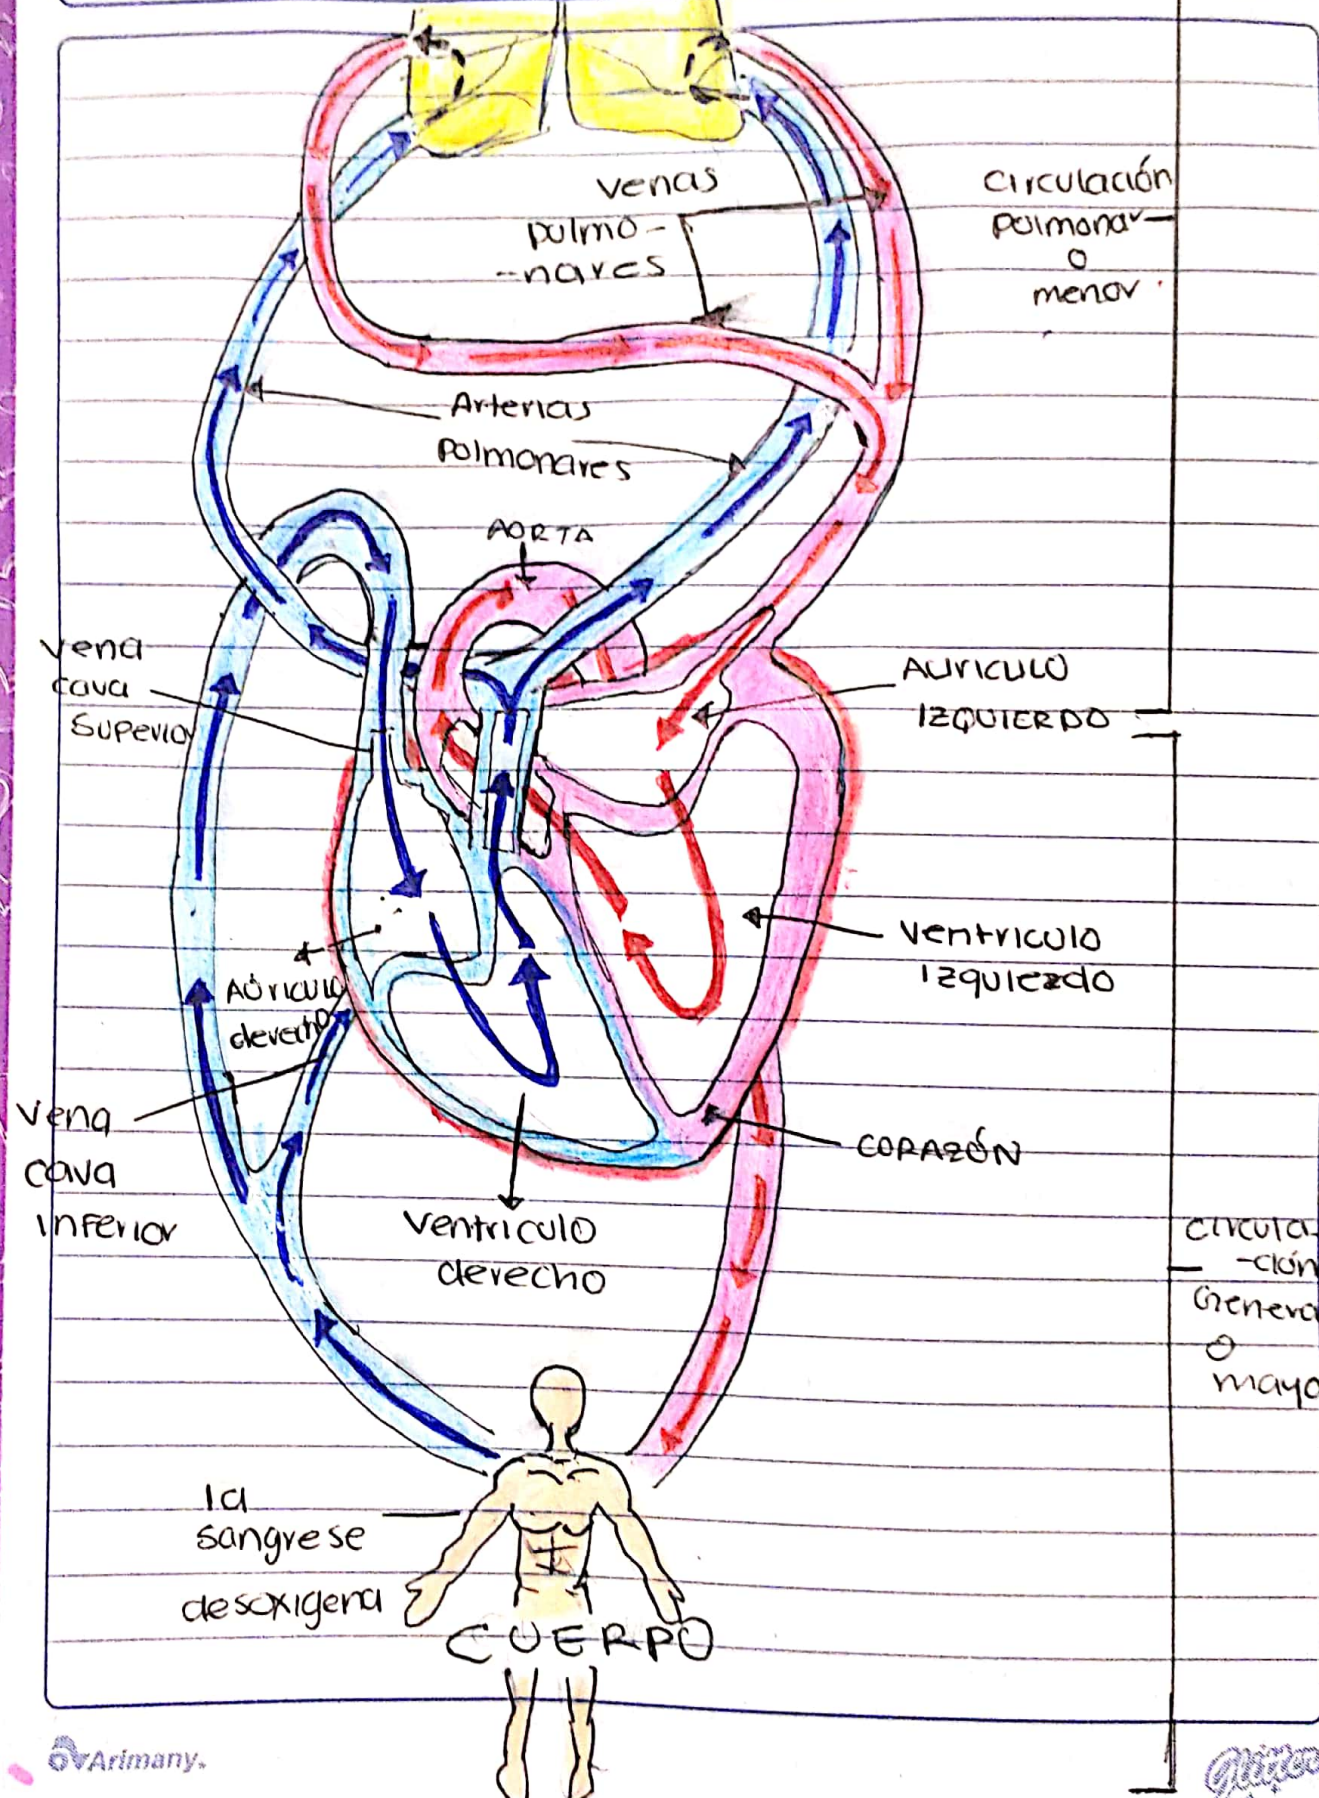 venas
pulmo-
-nares
Circulación
pulmonar
o
menor
Arterias
pulmonares
AORTA
vena
cava
superior
AURICULO
IZQUIERDO
Ventriculo
Izquierdo
AÚRICULO
derecho
vena
cava
inferior
CORAZÓN
ventriculo
derecho
circula-
-ción
Genera
o
mayo
la
sangre se
desoxigena
CUERPO
Arimany.